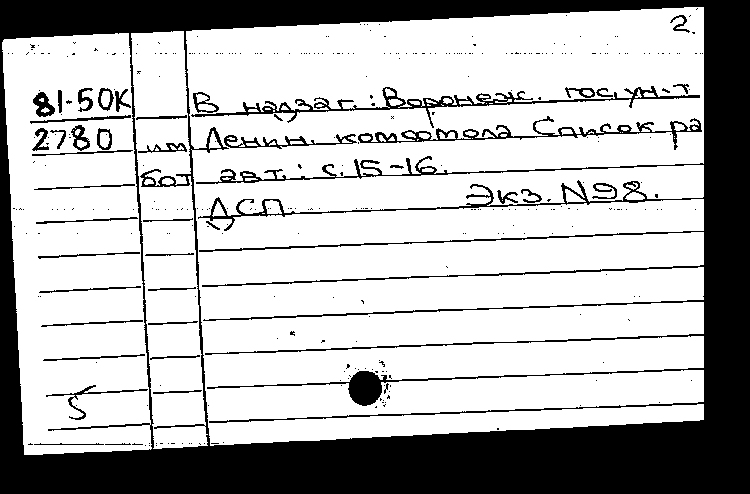 2.
81-50К В надзаг.: Воронеж. гос. ун-т
2780 им Ленин. комсомола Список ра
бот авт.: с. 15-16.
ДСП Экз. N98.
5